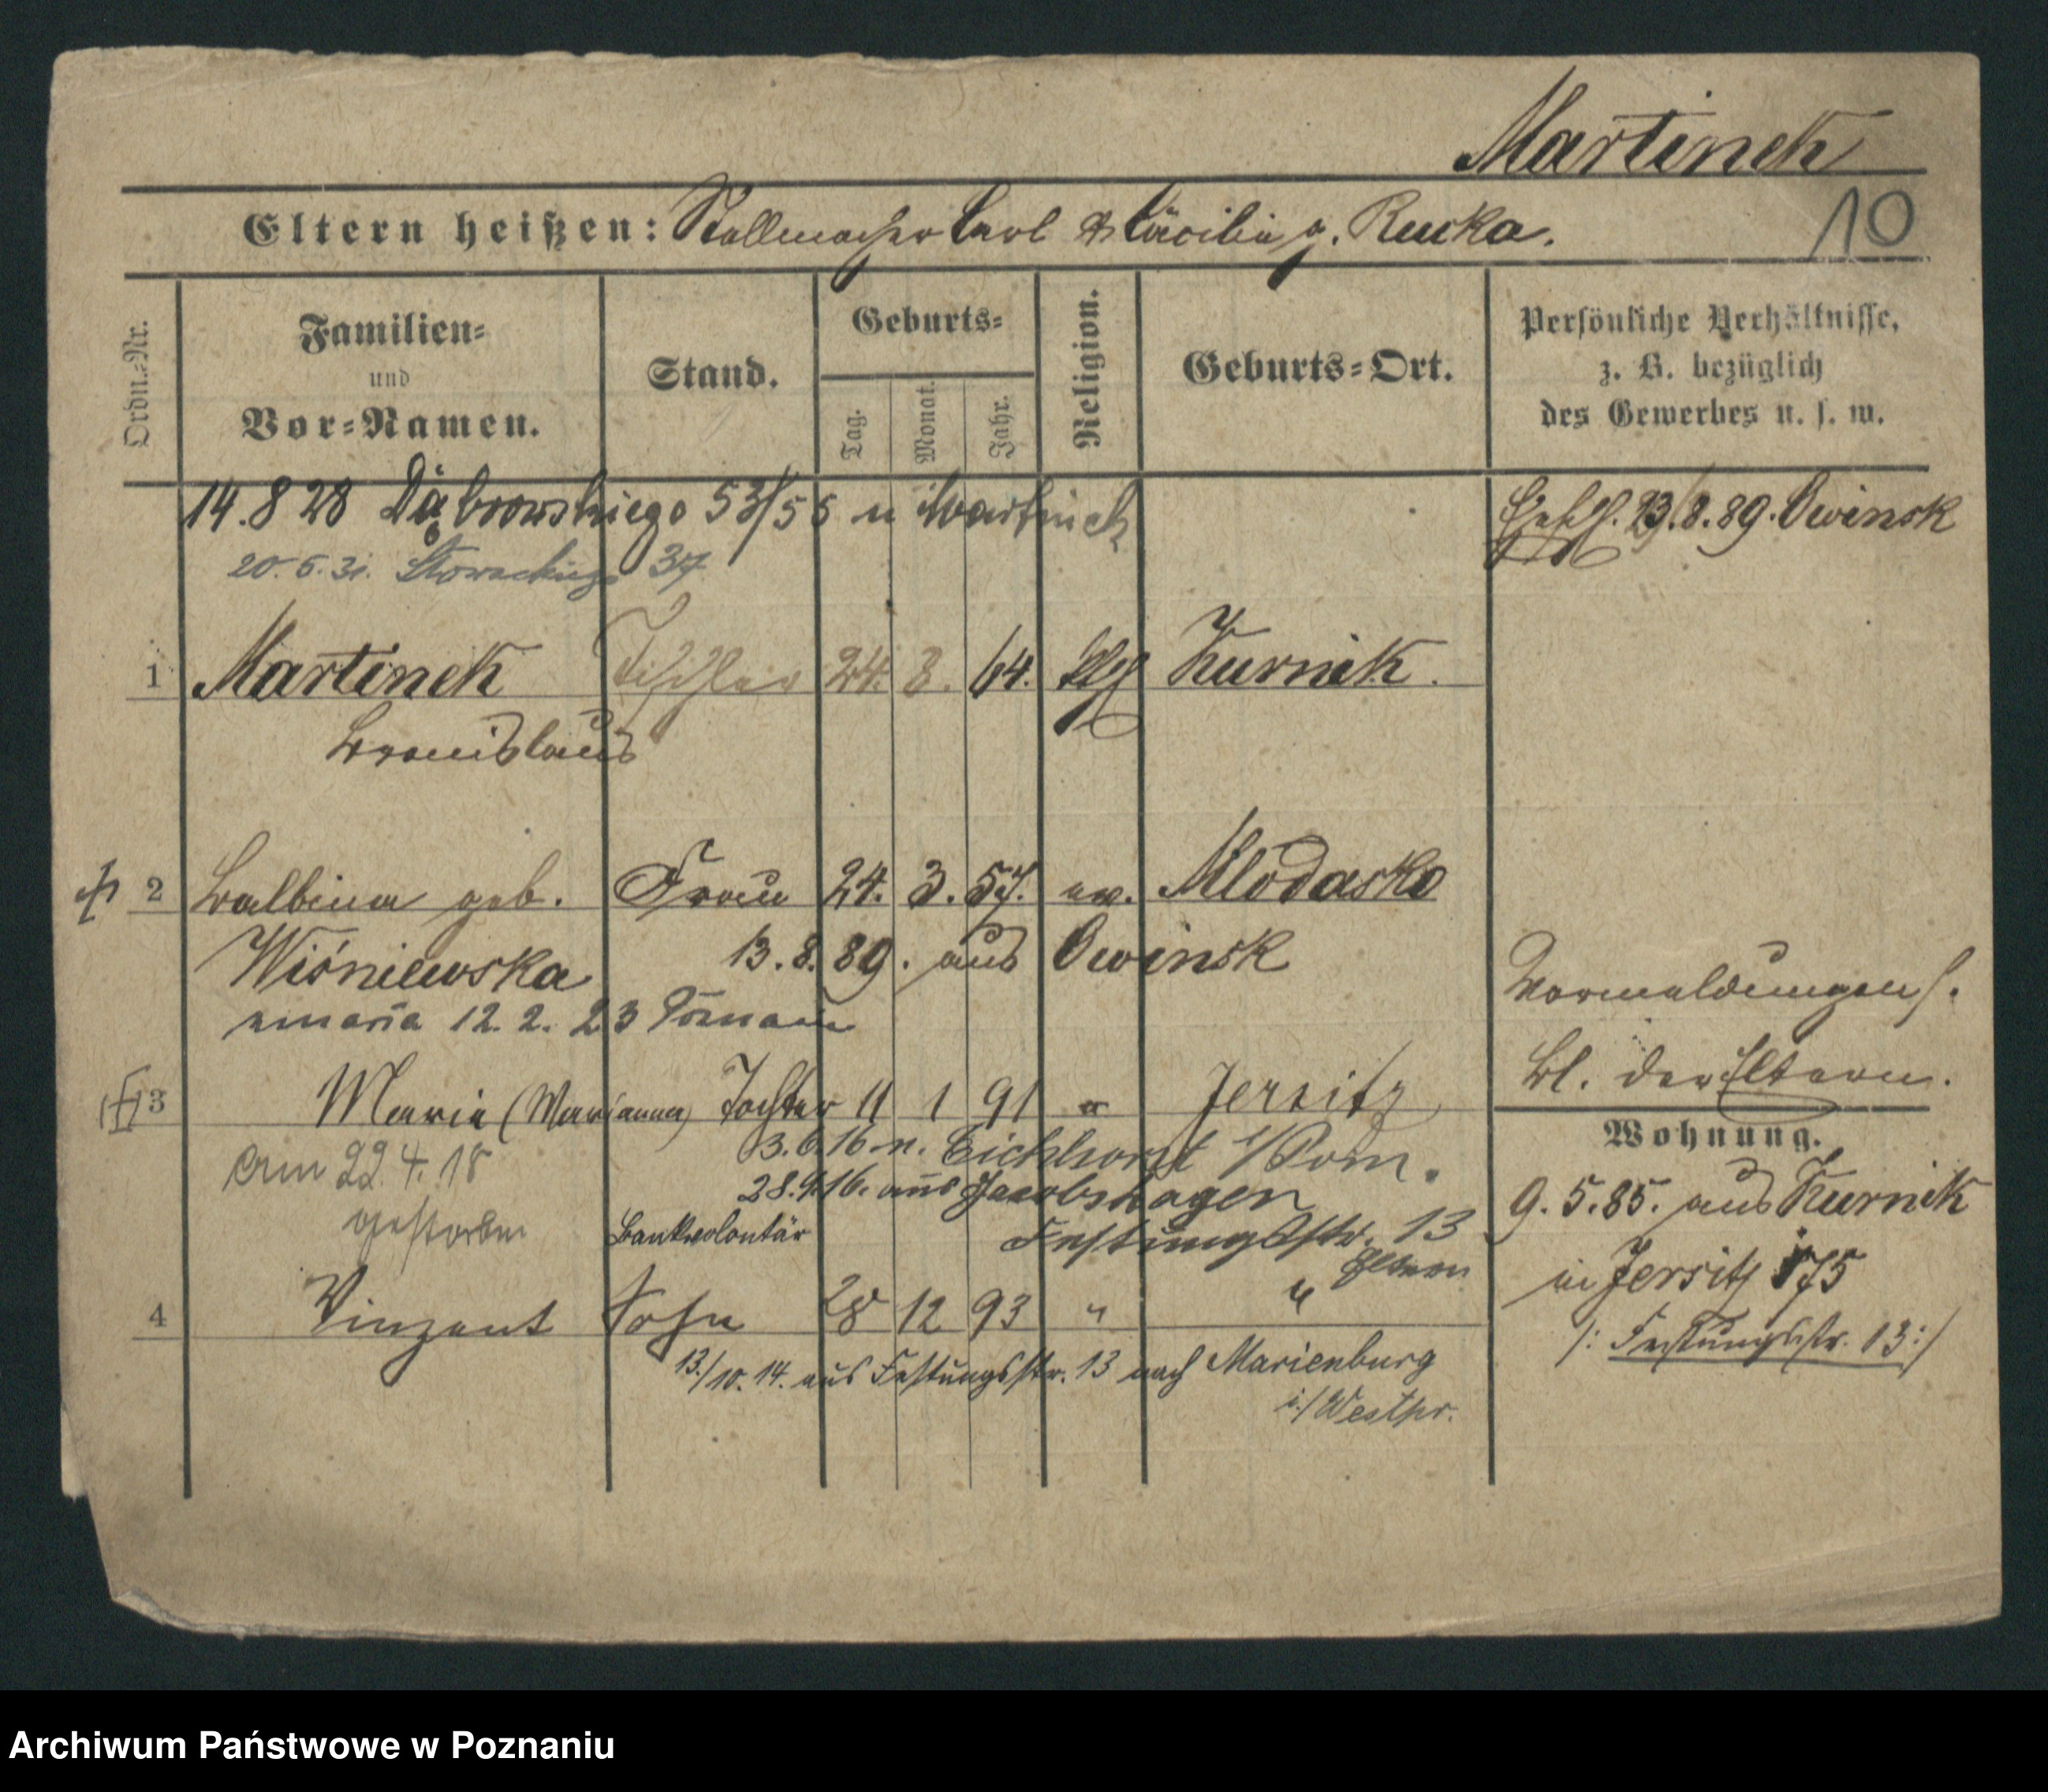 Martinek
10
Eltern heißen: Stellmacher Carl & Cäcilia g. Rucka.
Ordn.-Nr.
Familien-
und
Vor-Namen.
Stand.
Geburts-
Tag.
Monat.
Jahr.
Religion.
Geburts-Ort.
Persönliche Verhältnisse,
z. B. bezüglich
des Gewerbes u. s. w.
14.8 28 Dąbrowskiego 53/55 u Martinek
23.8.89. Owinsk
20.6.31. Słowackiego 37
1 Martinek Tischler 24. 8. 64. Kurnik.
Bronislaus
2 Balbina geb. Frau 24. 3. 57. Mlodasko
Wiśniewska 13.8.89. aus Owinsk
zmarła 12.2.23 Poznań
Vormeldungen s.
Bl. der Eltern.
3 Maria (Marianna) Tochter 11 1 91 " Jersitz
Wohnung.
am 22.4.18
gestorben
3.6.16 n. Eichhorst i/Pom.
28.9.16. aus Jacobshagen
Festungsstr. 13
Eltern
9.5.85. aus Kurnik
in Jersitz 175
/: Festungsstr. 13 :/
Bankvolontär
4 Vinzent Sohn 28 12 93 " "
13./10.14. aus Festungsstr. 13 nach Marienburg
i./Westpr.
Archiwum Państwowe w Poznaniu